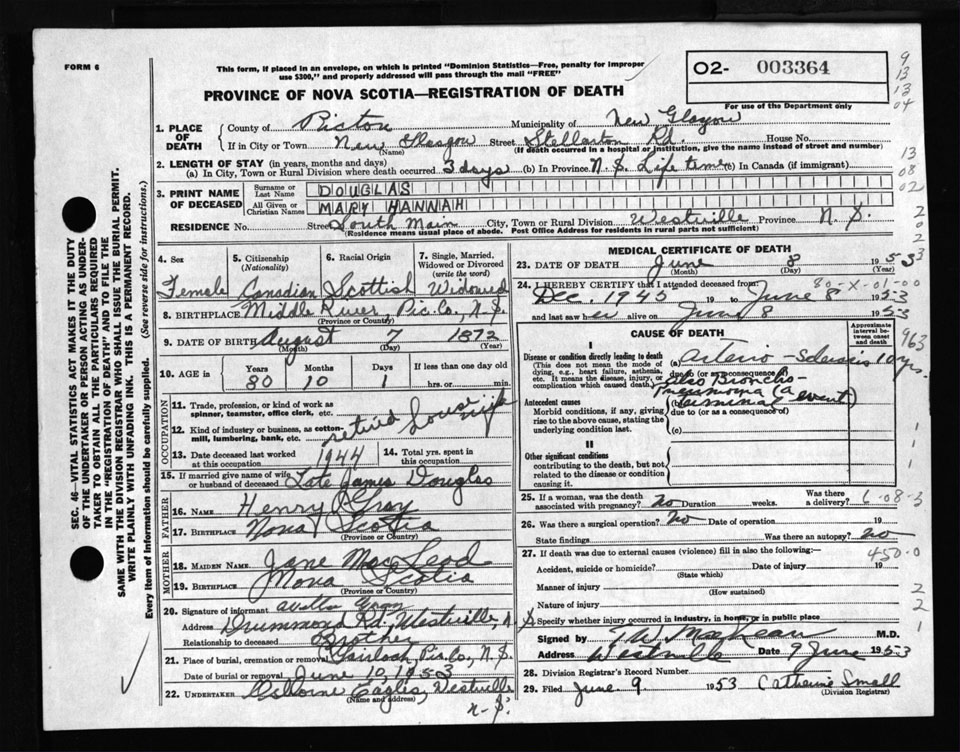 FORM 6
This form, if placed in an envelope, on which is printed "Dominion Statistics—Free, penalty for improper
use $300," and properly addressed will pass through the mail "FREE"
PROVINCE OF NOVA SCOTIA—REGISTRATION OF DEATH
02- 003364
For use of the Department only
9
13
13
04
13
08
02
2
0
2
3
SEC. 46—VITAL STATISTICS ACT MAKES IT THE DUTY
OF THE UNDERTAKER OR PERSON ACTING AS UNDER-
TAKER TO OBTAIN ALL THE PARTICULARS REQUIRED
IN THE "REGISTRATION OF DEATH" AND TO FILE THE
SAME WITH THE DIVISION REGISTRAR WHO SHALL ISSUE THE BURIAL PERMIT.
WRITE PLAINLY WITH UNFADING INK. THIS IS A PERMANENT RECORD.
Every item of Information should be carefully supplied. (See reverse side for instructions.)
1. PLACE OF DEATH
County of Pictou Municipality of New Glasgow
If in City or Town New Glasgow Street Stellarton Rd. House No.
(Name) (If death occurred in a hospital or institution, give the name instead of street and number)
2. LENGTH OF STAY (in years, months and days)
(a) In City, Town or Rural Division where death occurred 3 days (b) In Province N.S. Life time (b) In Canada (if immigrant)
3. PRINT NAME OF DECEASED
Surname or Last Name DOUGLAS
All Given or Christian Names MARY HANNAH
RESIDENCE No. Street South Main City, Town or Rural Division Westville Province N.S.
(Residence means usual place of abode. Post Office Address for residents in rural parts not sufficient)
4. Sex Female
5. Citizenship (Nationality) Canadian
6. Racial Origin Scottish
7. Single, Married, Widowed or Divorced (write the word) Widowed
8. BIRTHPLACE Middle River, Pic. Co., N.S.
(Province or Country)
9. DATE OF BIRTH August 7 1872
(Month) (Day) (Year)
10. AGE in Years 80 Months 10 Days 1 If less than one day old hrs. or min.
OCCUPATION
11. Trade, profession, or kind of work as spinner, teamster, office clerk, etc.
12. Kind of industry or business, as cotton-mill, lumbering, bank, etc. retired housewife
13. Date deceased last worked at this occupation 1944
14. Total yrs. spent in this occupation
15. If married give name of wife or husband of deceased Late James Douglas
FATHER
16. NAME Henry Gray
17. BIRTHPLACE Nova Scotia
(Province or Country)
MOTHER
18. MAIDEN NAME Jane MacLeod
19. BIRTHPLACE Nova Scotia
(Province or Country)
20. Signature of informant Gray
Address Drummond Rd. Westville, N.S.
Relationship to deceased Brother
21. Place of burial, cremation or removal Gairloch, Pic. Co., N.S.
Date of burial or removal June 10, 1953
22. UNDERTAKER Osborne Eagles, Westville
(Name and address) N.S.
MEDICAL CERTIFICATE OF DEATH
23. DATE OF DEATH June 8 1953
(Month) (Day) (Year)
80-X-01-00
24. I HEREBY CERTIFY that I attended deceased from:
Dec. 1945 19 to June 8 1953
and last saw her alive on June 8 1953
CAUSE OF DEATH
Approximate interval between onset and death
963
I
Disease or condition directly leading to death
(This does not mean the mode of dying, e.g., heart failure, asthenia, etc. It means the disease, injury, or complication which caused death.)
(a) Arterio-Sclerosis 10 yrs.
due to (or as a consequence of)
Also Broncho-
Pneumonia (a
terminal event)
Antecedent causes
Morbid conditions, if any, giving rise to the above cause, stating the underlying condition last.
due to (or as a consequence of)
(c)
II
Other significant conditions
contributing to the death, but not related to the disease or condition causing it.
1
1
1
25. If a woman, was the death associated with pregnancy? No Duration weeks. Was there a delivery? 6-08-3
26. Was there a surgical operation? No Date of operation 19
State findings Was there an autopsy? no
27. If death was due to external causes (violence) fill in also the following:— 450-0
Accident, suicide or homicide? Date of injury 19
(State which)
Manner of injury
(How sustained)
Nature of injury
2
2
1
Specify whether injury occurred in industry, in home, or in public place
Signed by M.D.
Address Westville Date 9 June 1953
28. Division Registrar's Record Number
29. Filed June 9. 1953 Catherine Small
(Division Registrar)